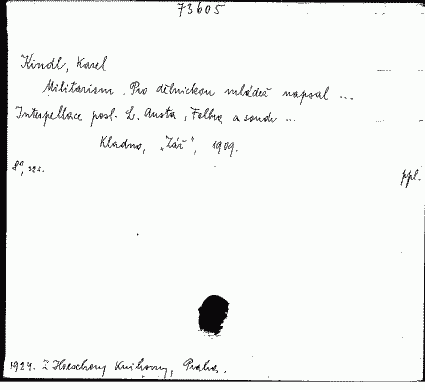 73605
Kindl, Karel
Militarism. Pro dělnickou mládež napsal ...
Interpellace posl. L. Austa, Felbra a soudr ...
Kladno, „Zář", 1909.
8°, 32 s.
ppl.
1929. Z Knihovny, Praha.